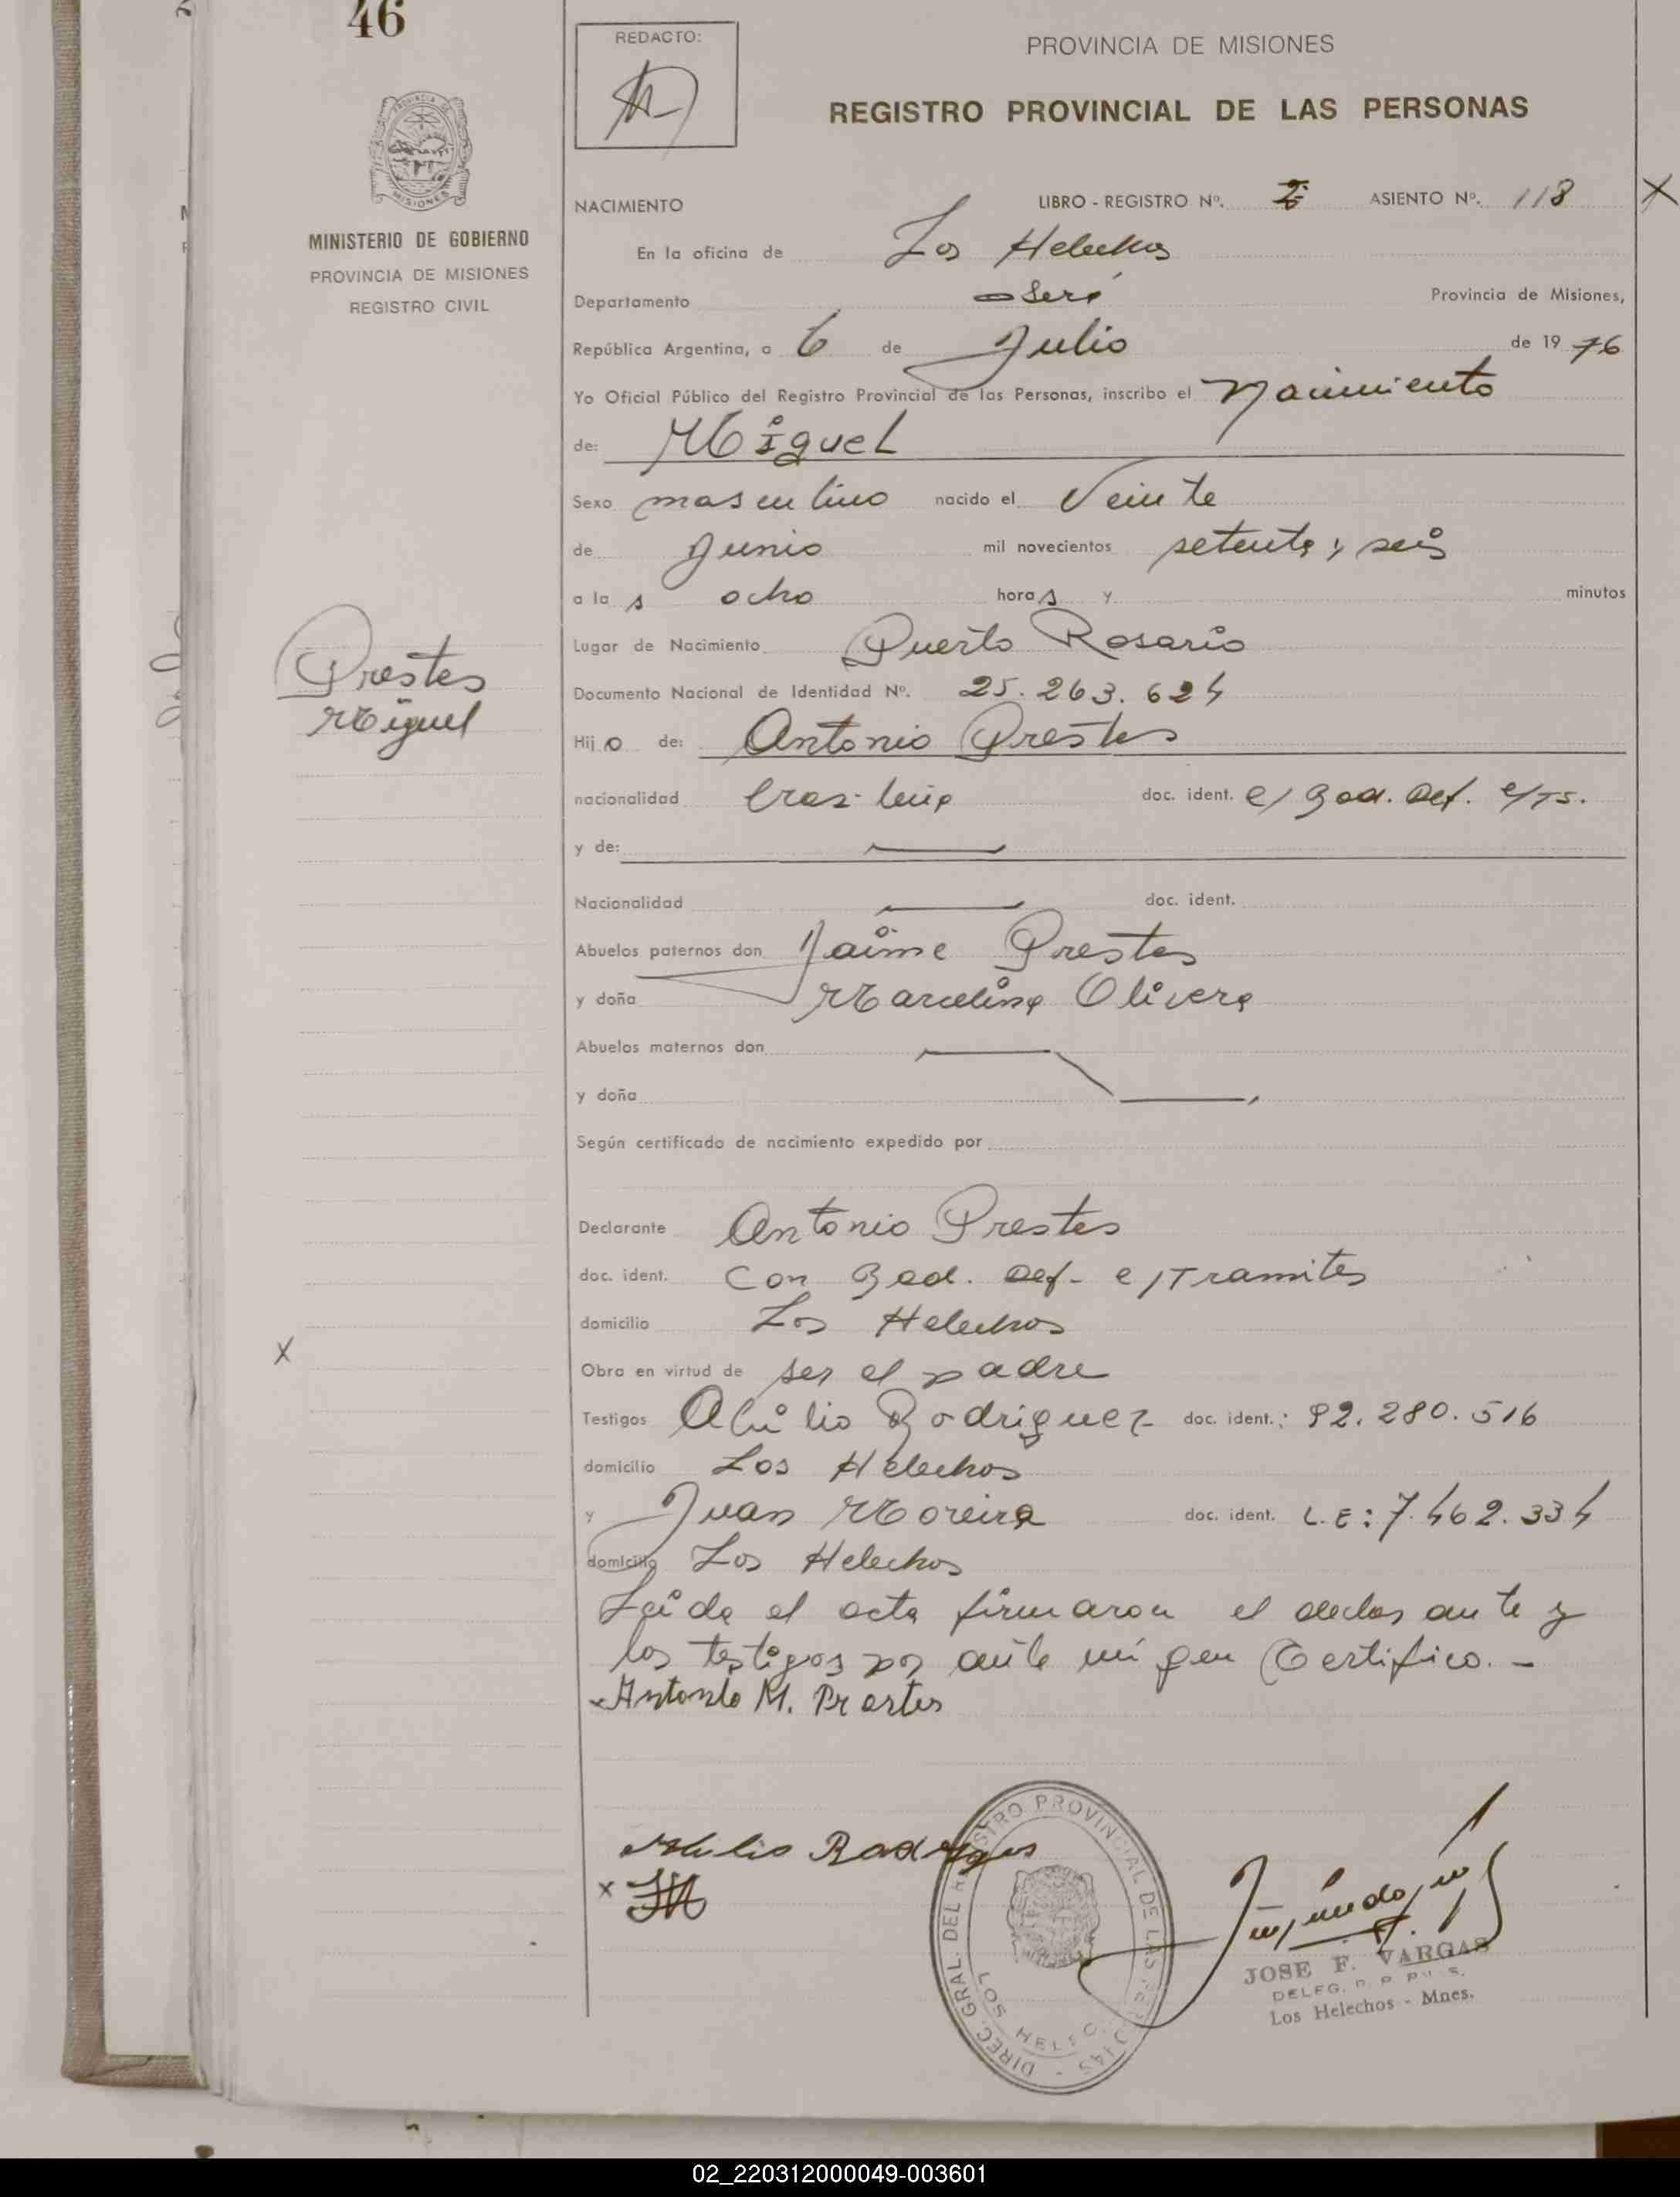 46
REDACTO:
PROVINCIA DE MISIONES
REGISTRO PROVINCIAL DE LAS PERSONAS
MISIONES
MINISTERIO DE GOBIERNO
PROVINCIA DE MISIONES
REGISTRO CIVIL
NACIMIENTO LIBRO - REGISTRO Nº. ASIENTO Nº. 118 X
En la oficina de Los Helechos
Departamento Oberá Provincia de Misiones,
República Argentina, a 6 de Julio de 1976
Yo Oficial Público del Registro Provincial de las Personas, inscribo el Nacimiento
de: Miguel
Sexo masculino nacido el Veinte
de Junio mil novecientos setenta y seis
a la s ocho hora s y minutos
Lugar de Nacimiento Puerto Rosario
Prestes
Miguel
Documento Nacional de Identidad Nº. 25.263.624
Hij o de: Antonio Prestes
nacionalidad brasileña doc. ident. c/ Rad. Def. e/Ts.
y de:
Nacionalidad doc. ident.
Abuelos paternos don Jaime Prestes
y doña Marcelina Olivera
Abuelos maternos don
y doña
Según certificado de nacimiento expedido por
Declarante Antonio Prestes
doc. ident. Con Rad. Def. e/Tramites
domicilio Los Helechos
X
Obra en virtud de ser el padre
Testigos Abilio Rodriguez doc. ident.: 92.280.516
domicilio Los Helechos
y Juan Moreira doc. ident. L.E: 7.462.334
domicilio Los Helechos
Leida el acta firmaron el declarante y
los testigos por ante mi que Certifico. -
Antonio M. Prestes
x JM
DIREC. GRAL. DEL REGISTRO PROVINCIAL DE LAS PERSONAS
LOS HELECHOS
JOSE F. VARGAS
DELEG. R. P. P.
Los Helechos - Mnes.
02_220312000049-003601